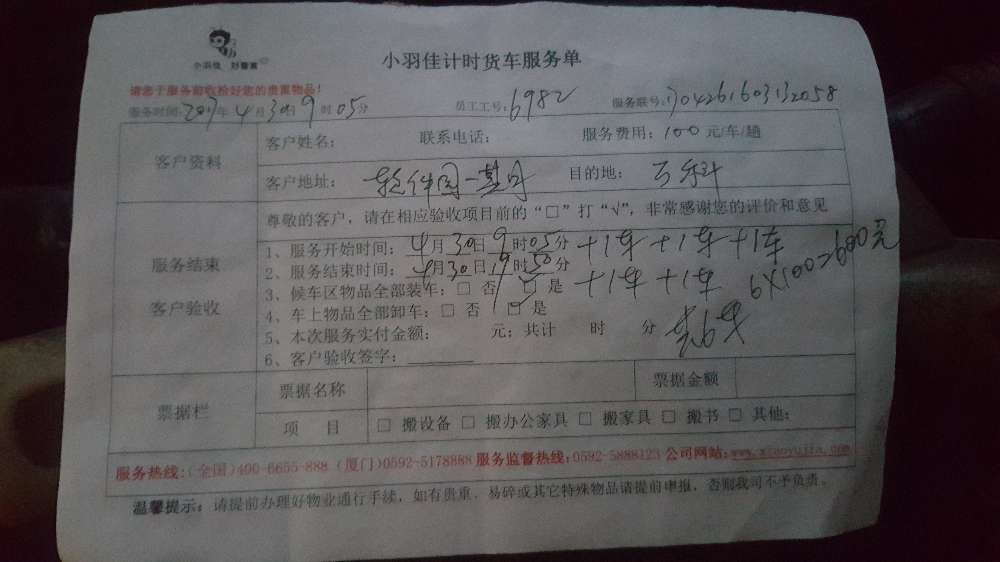 小羽佳 好管家
小羽佳计时货车服务单
请您于服务前收检好您的贵重物品!
服务时间:2017年4月30日9时05分 员工工号:6982 服务联号:
客户资料
客户姓名: 联系电话: 服务费用:100元/车/趟
客户地址: 软件园一期 目的地: 万科
服务结束
客户验收
尊敬的客户,请在相应验收项目前的“□”打“√”,非常感谢您的评价和意见
1、服务开始时间:4月30日9时05分 +1车 +1车 +1车
2、服务结束时间:4月30日19时50分
3、候车区物品全部装车:□ 否 □ 是 +1车 +1车 6×100=600元
4、车上物品全部卸车:□ 否 □ 是
5、本次服务实付金额: 元;共计 时 分 共6车
6、客户验收签字:
票据栏
票据名称 票据金额
项 目 □ 搬设备 □ 搬办公家具 □ 搬家具 □ 搬书 □ 其他:
服务热线:(全国)400-6655-888 (厦门)0592-5178888 服务监督热线:0592-5888123 公司网站:www.xiaoyujia.com
温馨提示:请提前办理好物业通行手续,如有贵重、易碎或其它特殊物品请提前申报,否则我司不予负责。